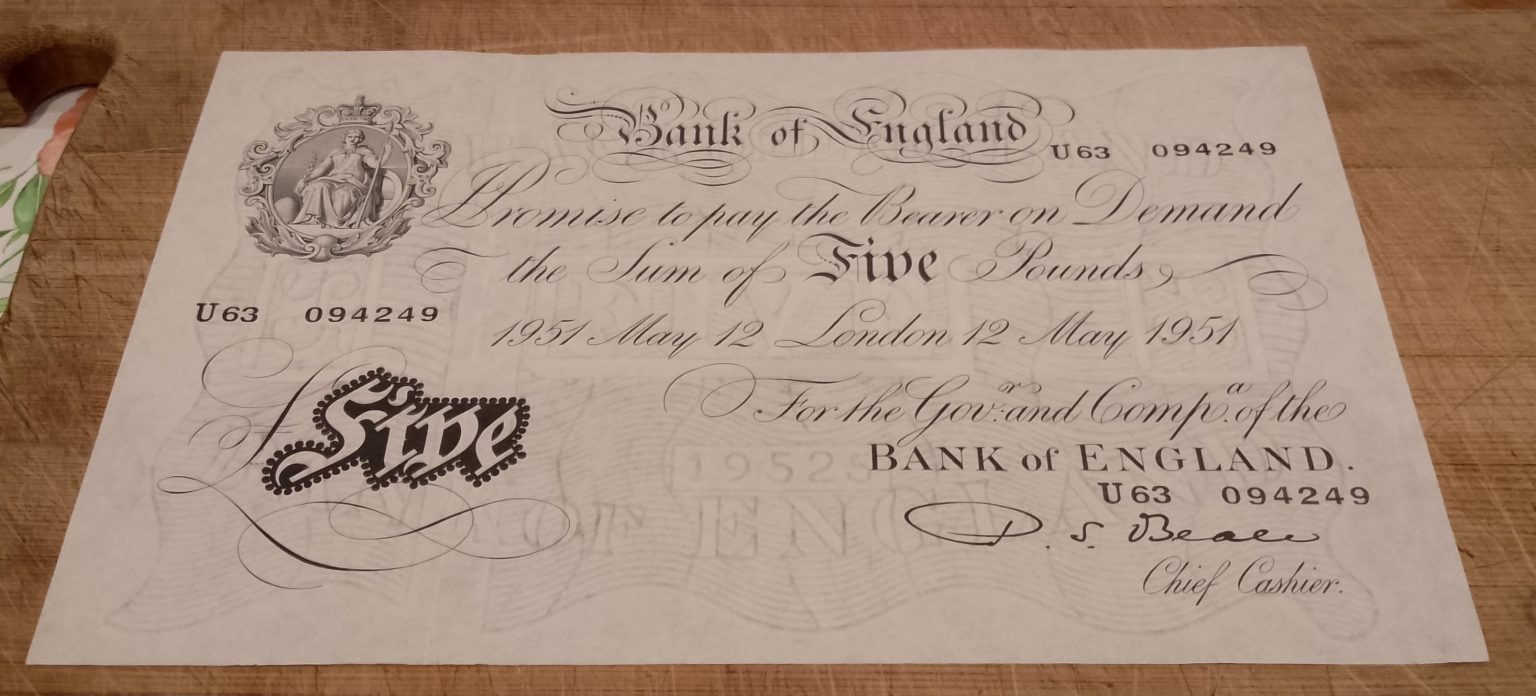 Bank of England
U63 094249
I Promise to pay the Bearer on Demand
the Sum of Five Pounds
U63 094249
1951 May 12 London 12 May 1951
£Five
For the Gov.r and Comp.a of the
BANK of ENGLAND.
1952
U63 094249
OF ENGLA
P. S. Beale
Chief Cashier.